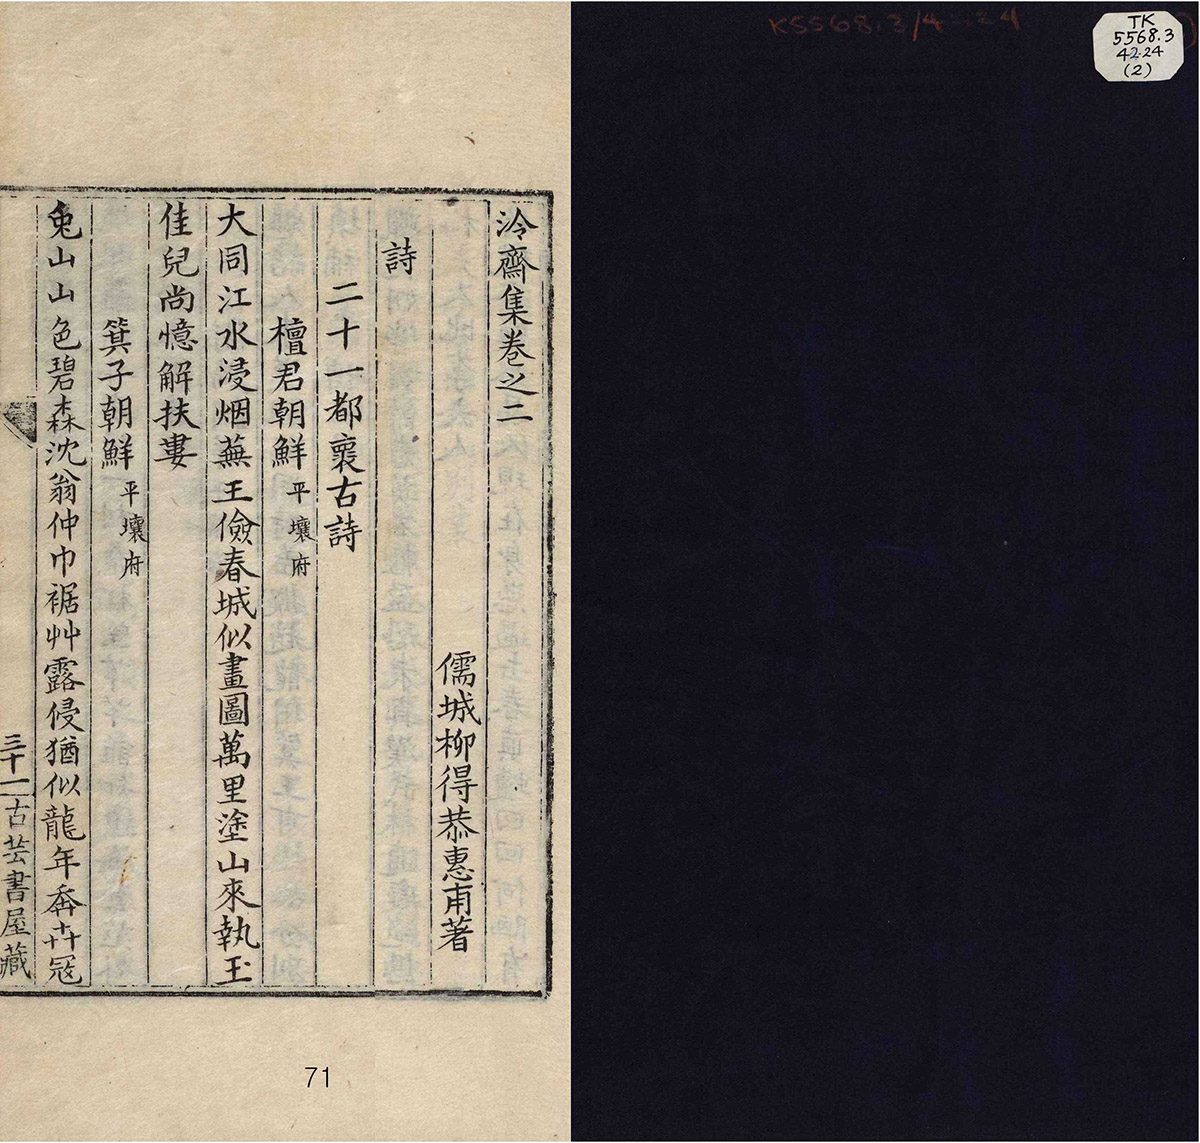 泠齋集卷之二
儒城柳得恭惠甫著
詩
二十一都褱古詩
檀君朝鮮 平壤府
大同江水浸烟蕪王儉春城似畫圖萬里塗山來執玉
佳兒尚憶解扶婁
箕子朝鮮 平壤府
兔山山色碧森沈翁仲巾裾艸露侵猶似龍年奔卉寇
三十一 古芸書屋藏
71
K5568.3/42.24
TK
5568.3
42.24
(2)